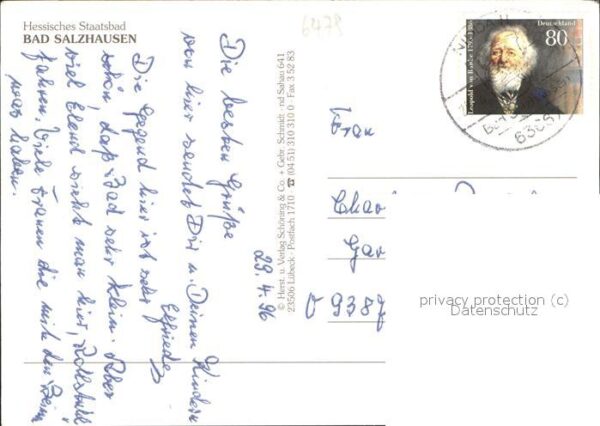 Hessisches Staatsbad
BAD SALZHAUSEN
6479
Die besten Grüße
von hier sendet Dir u. Deinen Kindern
Elfriede
Die Gegend hier ist sehr
schön, das Bad sehr klein. Aber
viel Elend sieht man hier, Rollstuhl
fahren, viele Frauen die mit den Bein
was haben.
29.4.96
© Herst. u. Verlag Schöning & Co. + Gebr. Schmidt, und Sanau 641
23506 Lübeck · Postfach 1710 ☎ (0451) 310 310 · Fax 3 52 83
Deutschland
80
Leopold von Ranke 1795-1886
Frau
Char
Gar
9387
privacy protection (c)
Datenschutz